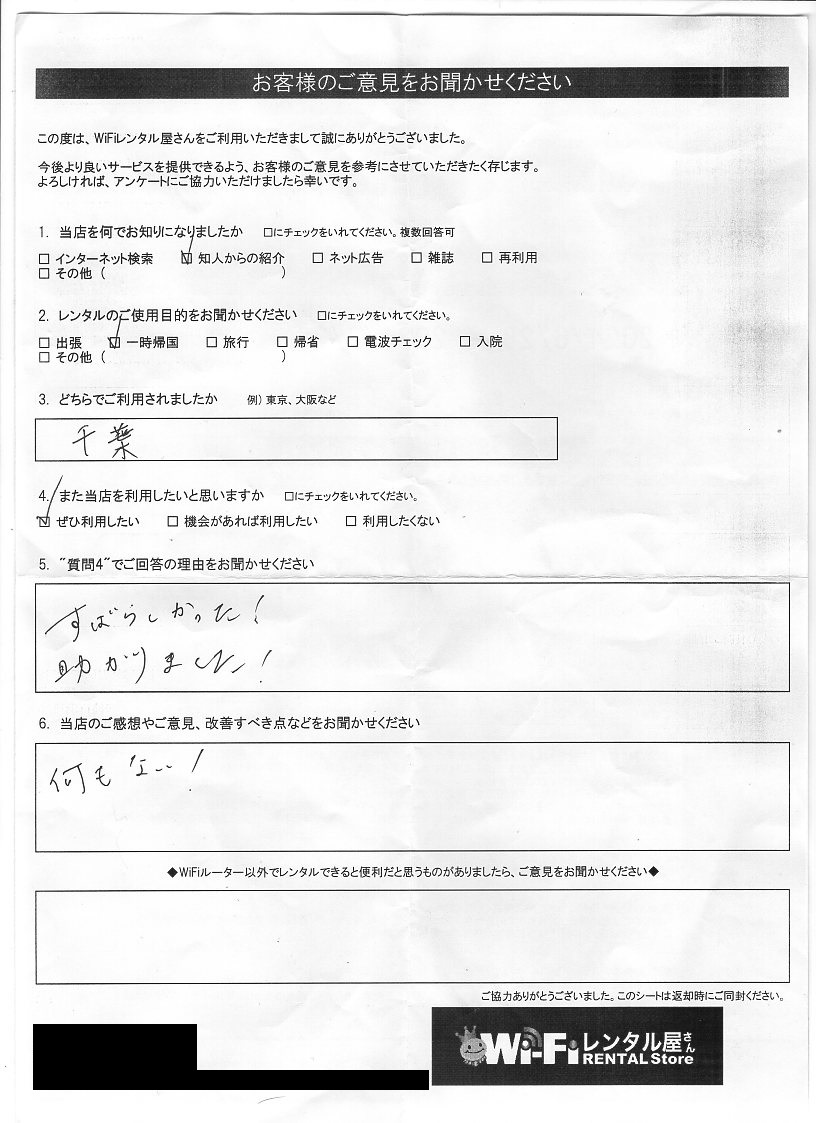 お客様のご意見をお聞かせください
この度は、WiFiレンタル屋さんをご利用いただきまして誠にありがとうございました。
今後より良いサービスを提供できるよう、お客様のご意見を参考にさせていただきたく存じます。
よろしければ、アンケートにご協力いただけましたら幸いです。
1. 当店を何でお知りになりましたか □にチェックをいれてください。複数回答可
□ インターネット検索 ☑ 知人からの紹介 □ ネット広告 □ 雑誌 □ 再利用
□ その他 ( )
2. レンタルのご使用目的をお聞かせください □にチェックをいれてください。
□ 出張 ☑ 一時帰国 □ 旅行 □ 帰省 □ 電波チェック □ 入院
□ その他 ( )
3. どちらでご利用されましたか 例) 東京、大阪など
千葉
4. また当店を利用したいと思いますか □にチェックをいれてください。
☑ ぜひ利用したい □ 機会があれば利用したい □ 利用したくない
5. "質問4"でご回答の理由をお聞かせください
すばらしかった!
助かりました!
6. 当店のご感想やご意見、改善すべき点などをお聞かせください
何もない!
◆WiFiルーター以外でレンタルできると便利だと思うものがありましたら、ご意見をお聞かせください◆
ご協力ありがとうございました。このシートは返却時にご同封ください。
Wi-Fiレンタル屋さん
RENTAL Store